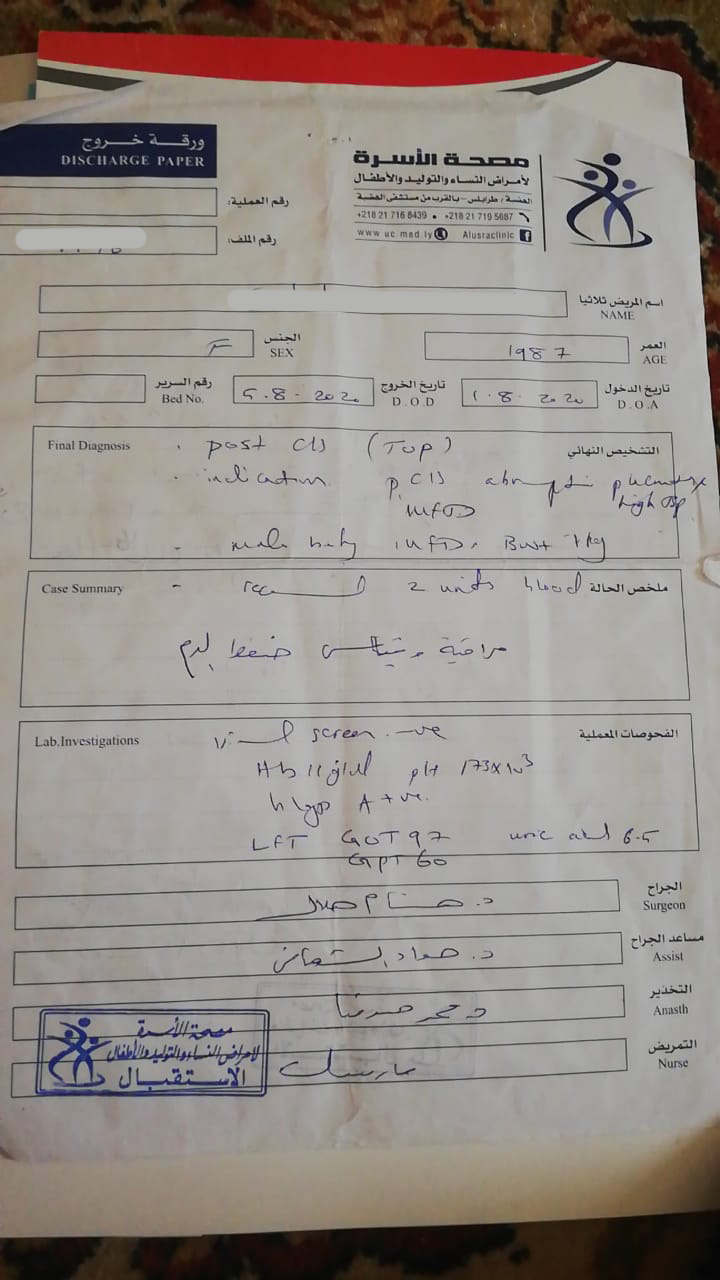 ورقة خروج
DISCHARGE PAPER
مصحة الأسرة
لأمراض النساء والتوليد والأطفال
الهضبة / طرابلس - بالقرب من مستشفى الهضبة
+218 21 716 8439 • +218 21 719 5687
www uc med ly Alusraclinic
رقم العملية:
رقم الملف:
اسم المريض ثلاثيا
NAME
الجنس
SEX
F
العمر
AGE
1987
تاريخ الدخول
D.O.A
1.8.2020
تاريخ الخروج
D.O.D
5.8.2020
رقم السرير
Bed No.
Final Diagnosis
التشخيص النهائي
post C/S (TOP)
indication p.C/S
high BP
IUFD
- male baby IUFD.
Case Summary
ملخص الحالة
- 2 units blood
مراقبة ضغط الدم
Lab.Investigations
الفحوصات المعملية
screen -ve
Hb 11 g/dl plt 173x10³
A +ve.
LFT GOT 97 uric acid 6.5
GPT 60
الجراح
Surgeon
د.
مساعد الجراح
Assist
د.
التخذير
Anasth
د. محمد
التمريض
Nurse
مصحة الأسرة
لأمراض النساء والتوليد والأطفال
الاستقبال